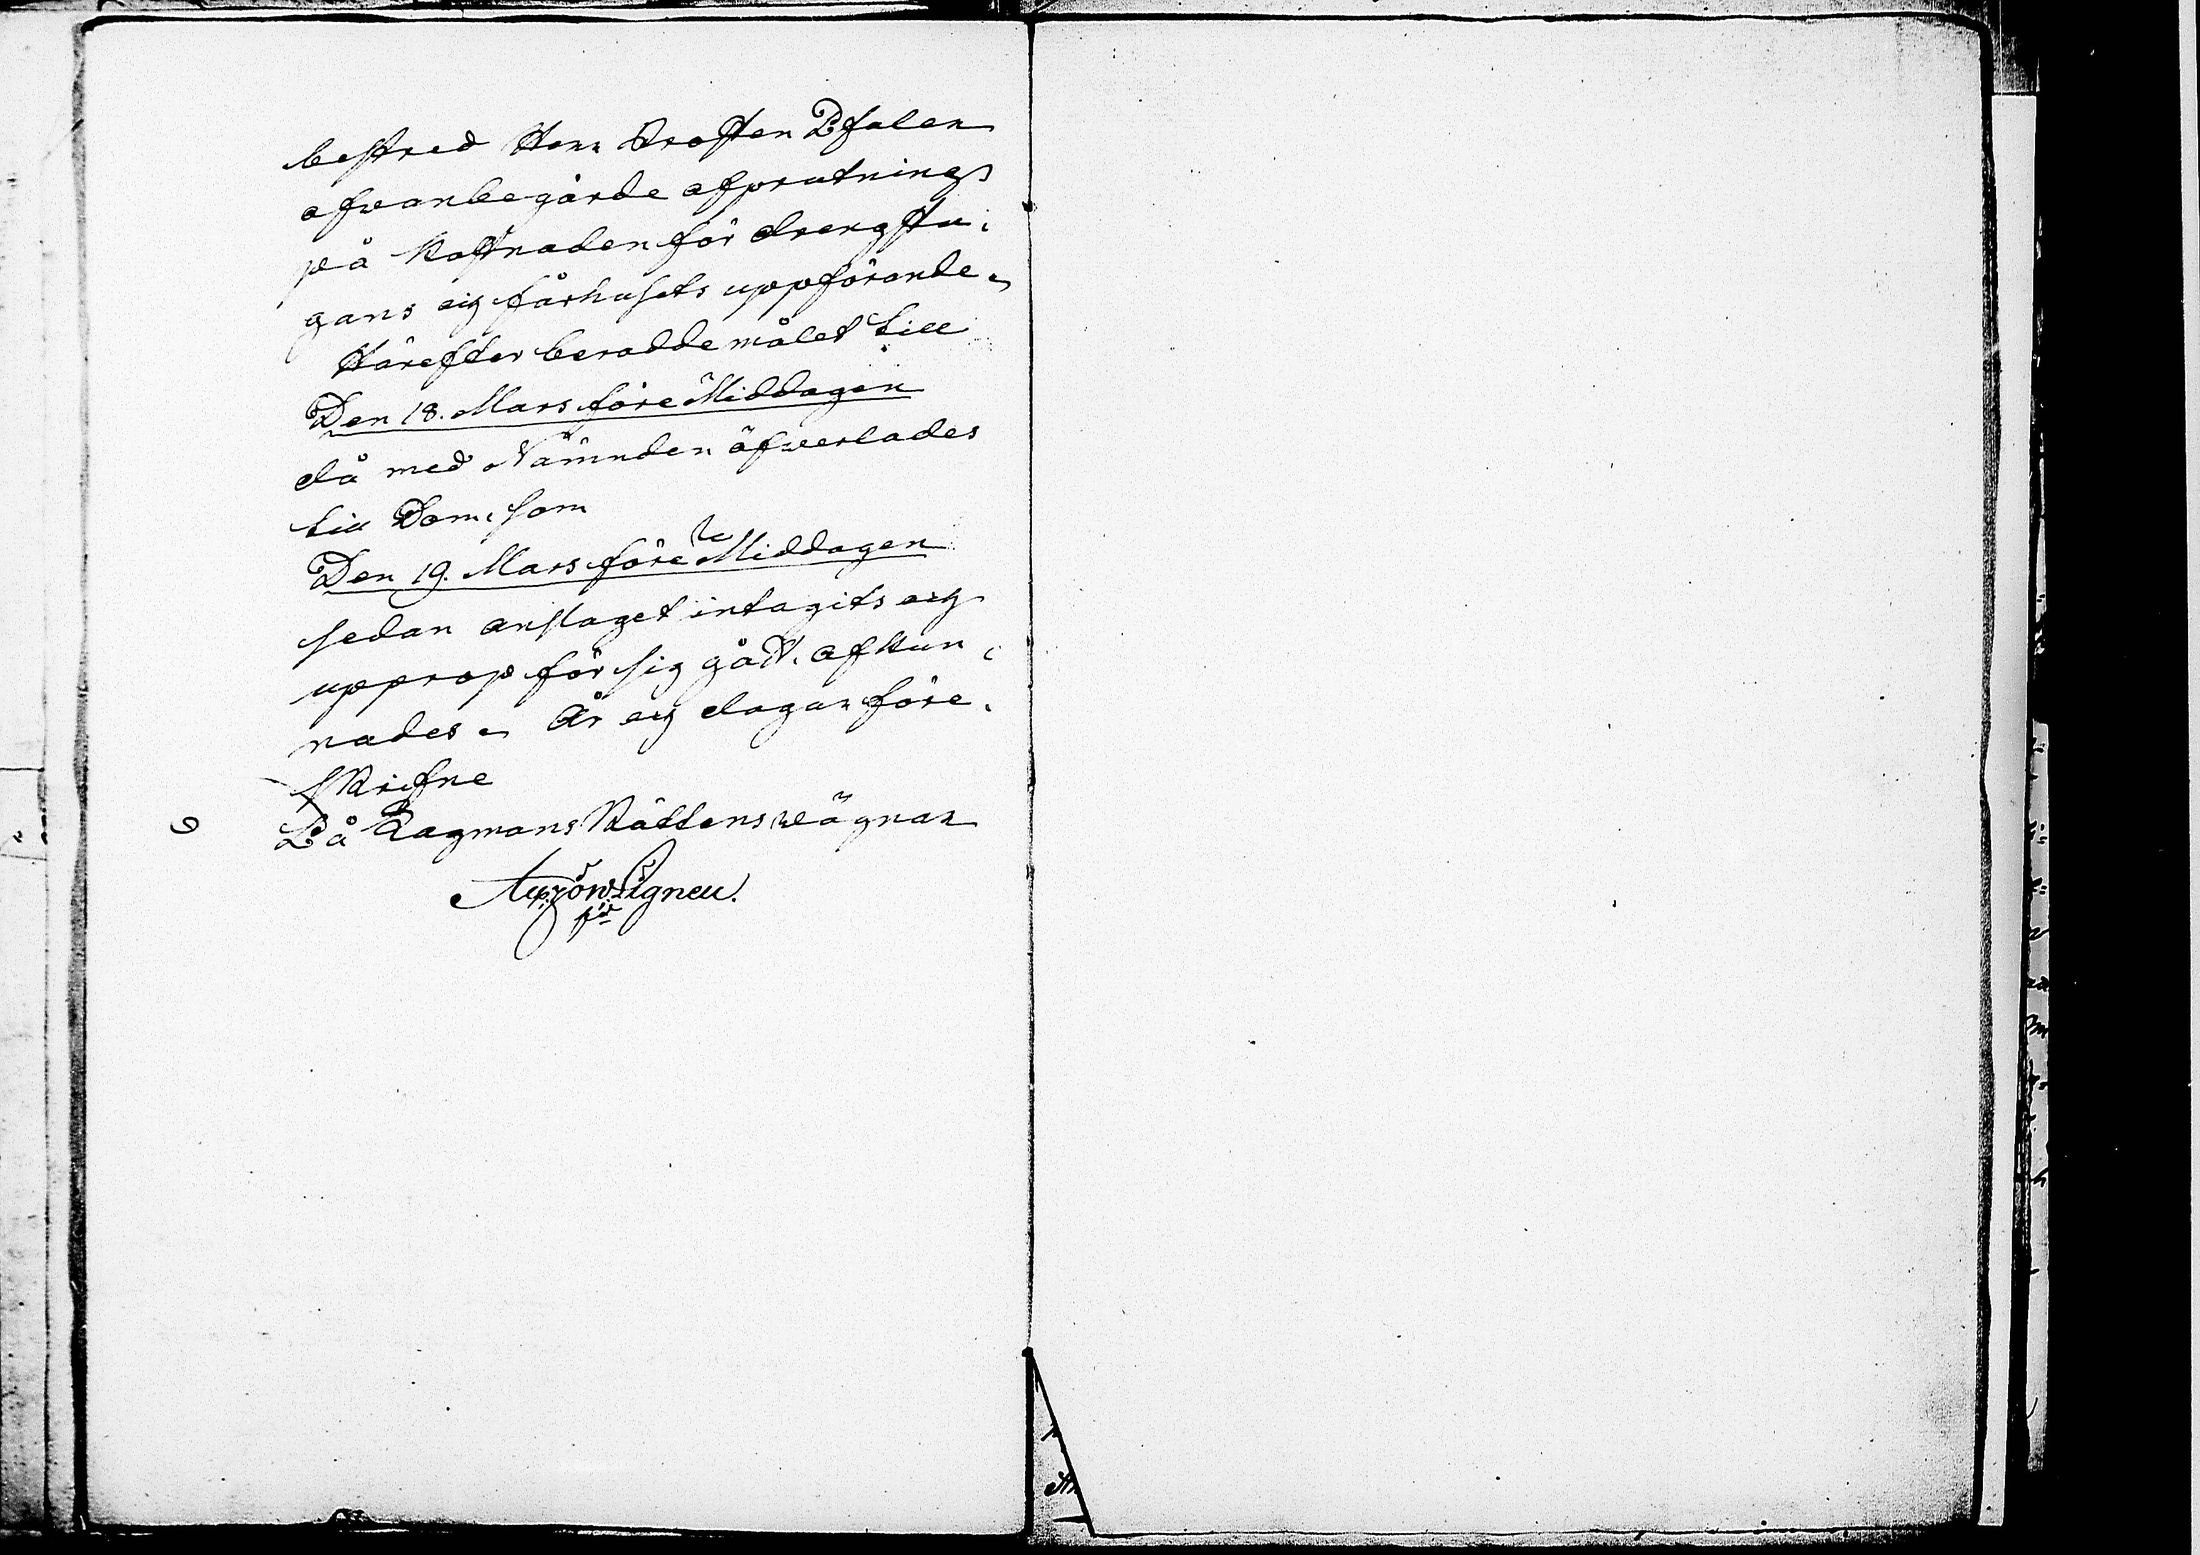 bestred Herr Prosten Pfaler
ofwanbegärde afprutning
på kostnaden för drengstu,
gans och fårhusets uppförande.
Härefter berodde målet till
Den 18. Mars före Middagen
då med Nämnden öfwerlades
till Dom, som
Den 19. Mars före Middagen
sedan anslaget intagits och
upprop för sig gådt, afkun,
nades. År och dagar före,
skrifne
På Lagmans Rättens wägnar